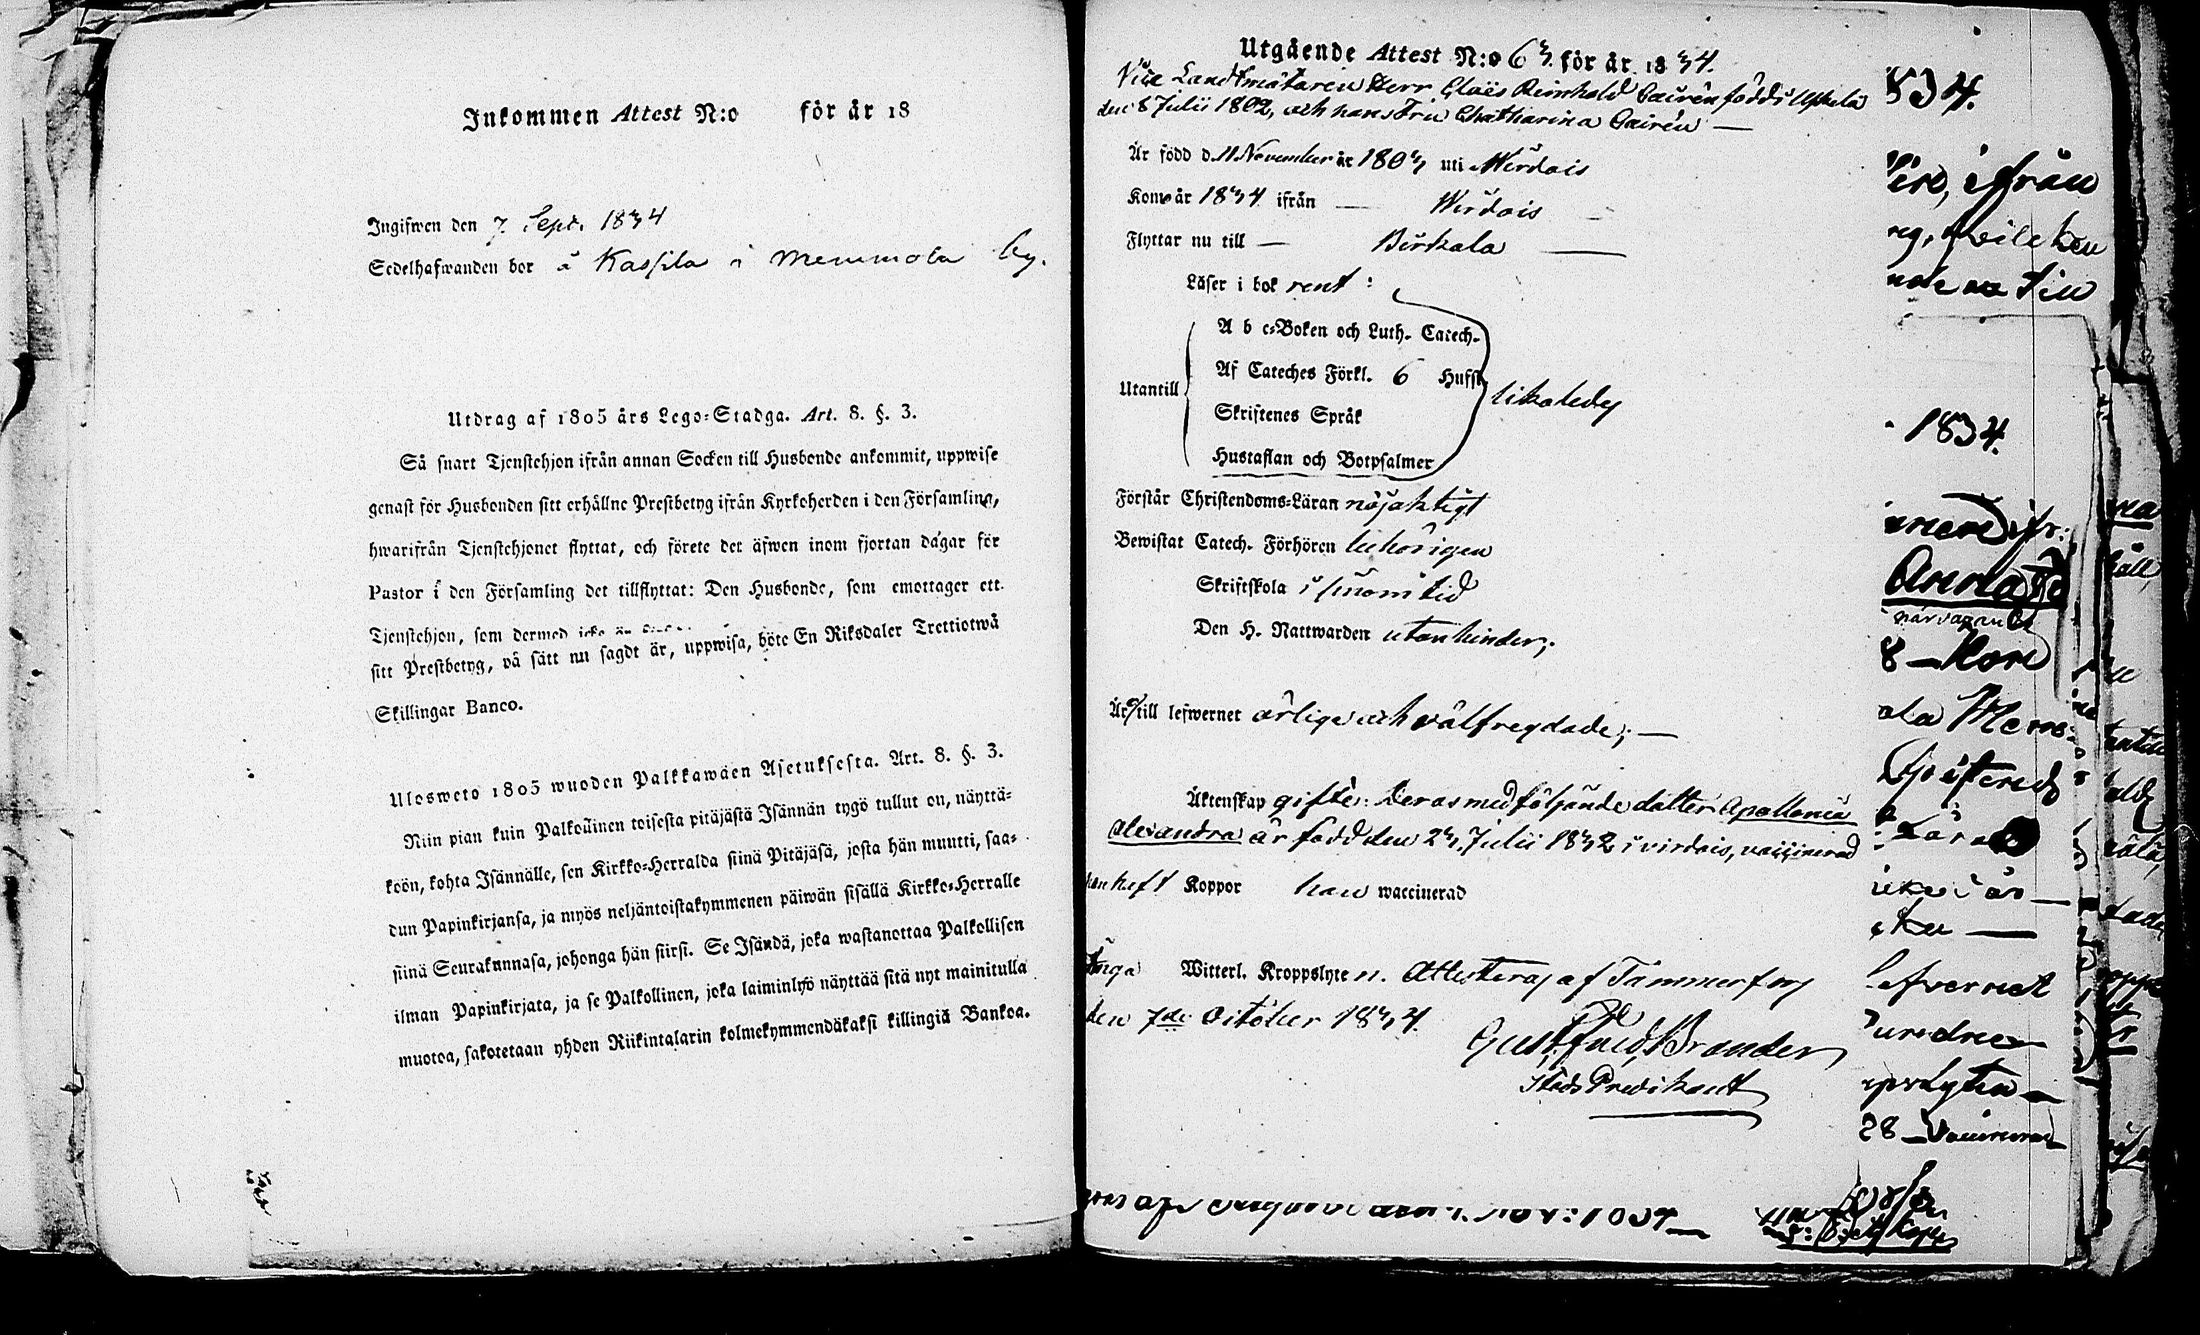 Inkommen Attest N:o för år 18
Ingifwen den 7 Sept. 1834
Sedelhafwanden bor å Kassila i Memmola by.
Utdrag af 1805 års Lego-Stadga. Art. 8. §. 3.
Så snart Tjenstehjon ifrån annan Socken till Husbonde ankommit, uppwise
genast för Husbonden sitt erhållne Prestbetyg ifrån Kyrkoherden i den Församling,
hwarifrån Tjenstehjonet flyttat, och förete det äfwen inom fjortan dagar för
Pastor i den Församling det tillflyttat: Den Husbonde, som emottager ett
Tjenstehjon, som dermed icke än
sitt Prestbetyg, på sätt nu sagdt är, uppwisa, böte En Riksdaler Trettiotwå
Skillingar Banco.
Ulosweto 1805 wuoden Palkkawäen Asetuksesta. Art. 8. §. 3.
Niin pian kuin Palkollinen toisesta pitäjästä Isännän tygö tullut on, näyttä-
köön, kohta Isännälle, sen Kirkko-Herralda siinä Pitäjäsä, josta hän muutti, saa-
dun Papinkirjansa, ja myös neljäntoistakymmenen päiwän sisällä Kirkko-Herralle
siinä Seurakunnasa, johonga hän siirsi. Se Isändä, joka wastanottaa Palkollisen
ilman Papinkirjata, ja se Palkollinen, joka laiminlyö näyttää sitä nyt mainitulla
muotoa, sakotetaan yhden Riikintalarin kolmekymmendäkaksi killingiä Bankoa.
Utgående Attest N:o 63 för år 1834.
Vice Landtmätaren Herr Claës Reinhold Gairén född i
den 8 Julii 1802, och hans Fru Chatharina Gairén —
Är född d. 11 November år 1803 uti Wirdois
Kom år 1834 ifrån — Wirdois —
Flyttar nu till — Birkala —
Läser i bok rent:
A b c-Boken och Luth. Catech.
Af Cateches Förkl. 6 Hufst
Utantill likaledes
Skriftenes Språk
Hustaflan och Botpsalmer
Förstår Christendoms-Läran nöjaktigt
Bewistat Catech. Förhören behörigen
Skriftskola i sinom tid
Den H. Nattwarden utan hinder;
Är till lefwernet ärlige och välfregdade; —
Äktenskap gifte: Deras medföljande dotter Apollonia
Alexandra är född den 23 Julii 1832 i virdois, vaccinerad
hon haft Koppor han waccinerad
Inga Witterl. Kroppslyten. Attesteras af Tammerfors
den 7de October 1834.
Gust. Fried. Brander
Stads Predikant
834.
ifrån
hvilken
till
1834.
Anna
närvarande
8 —
28 — Vaccinerad